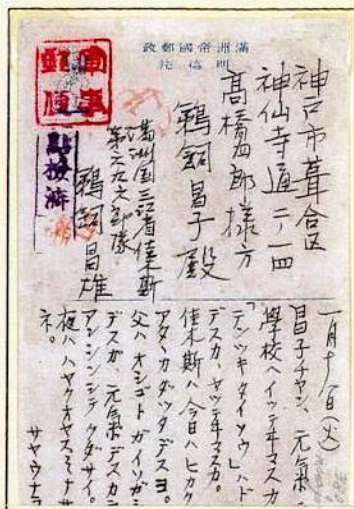 滿洲帝國郵政
明信片
軍事
郵便
點檢濟
神戸市葺合区
神仙寺通二ノ一四
高橋四郎様方
鵜飼昌子殿
満洲国三江省佳木斯
部隊
鵜飼昌雄
一月十八日(火)
昌子チャン、元氣
學校ヘイッテヰマスカ
「テンツキタイソウ」ハド
デスカ、ヤッテヰマスカ。
佳木斯ハ今日ハヒカク
アタヽカダッタデスヨ。
父ハオシゴトガイソガシ
デスガ、元氣デスカラ
アンシンシテクダサイ。
夜ハハヤクオヤスミナサ
ネ。
サヤウナラ